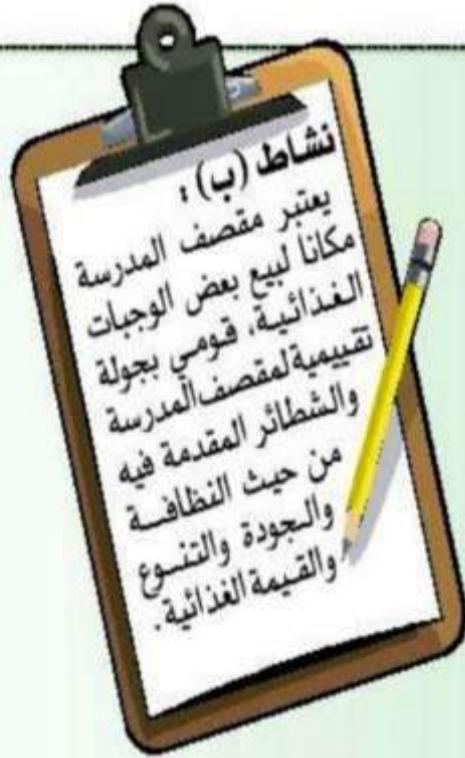 نشاط (ب) :
يعتبر مقصف المدرسة
مكانا لبيع بعض الوجبات
الغذائية، قومي بجولة
تقييمية لمقصف المدرسة
والشطائر المقدمة فيه
من حيث النظافة
والجودة والتنوع
والقيمة الغذائية.